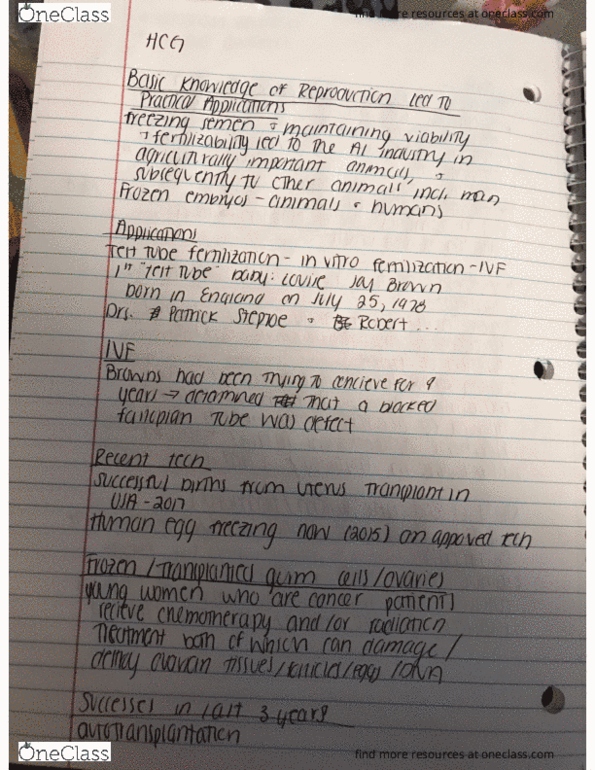 OneClass
find more resources at oneclass.com
HCG
Basic Knowledge of Reproduction Led to
Practical Applications
freezing semen + maintaining viability
+ fertilizability led to the AI industry in
agriculturally important animals, +
subsequently to other animals incl. man
Frozen embryos - animals + humans
Applications
Test tube fertilization - in vitro fertilization - IVF
1st "test tube" baby: Louise Joy Brown
born in England on July 25, 1978
Drs. Patrick Steptoe + Robert ...
IVF
Browns had been trying to concieve for 9
years → determined that a blocked
fallopian tube was defect
Recent tech
Successful births from uterus transplant in
USA - 2017
Human egg freezing now (2015) an appoved tech
Frozen / Transplanted germ cells / ovaries
young women who are cancer patients
recieve chemotherapy and/or radiation
treatment both of which can damage /
destroy ovarian tissues / follicles / eggs / DNA
Successes in last 3 years
autotransplantation
OneClass
find more resources at oneclass.com